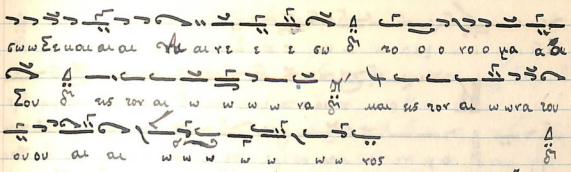 σωωζεκαιαιαι Και αι νε ε ε σω δι το ο ο νο ο μα α
Σου δι εις τον αι ω ω ω ω να δι και εις τον αι ωωνα του
ουου αι αι ω ω ω ω ω ω ω νος δι